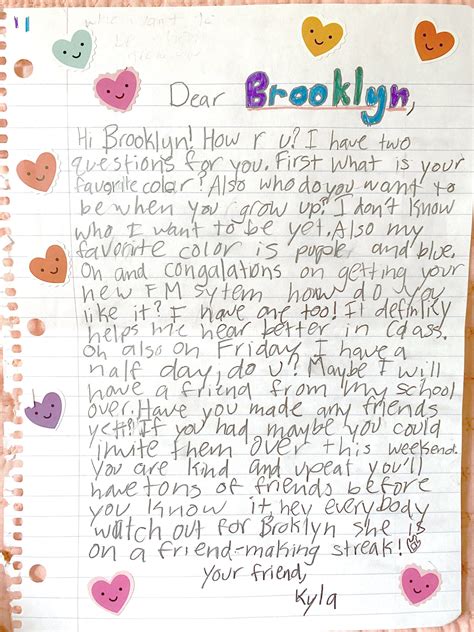 Dear Brooklyn,
Hi Brooklyn! How r u? I have two
questions for you. First what is your
favorite color? Also who do you want to
be when you grow up? I don't know
who I want to be yet. Also my
favorite color is puple and blue.
Oh and congalations on getting your
new FM sytem how do you
like it? I have one too! It definitly
helps me hear better in Class.
Oh also on Friday I have a
half day, do u? Maybe I will
have a friend from my school
over. Have you made any friends
yet? If you had maybe you could
invite them over this weekend.
You are kind and upeat you'll
have tons of friends before
you know it, hey everybody
watch out for Broklyn she is
on a friend-making streak!
your friend,
Kyla